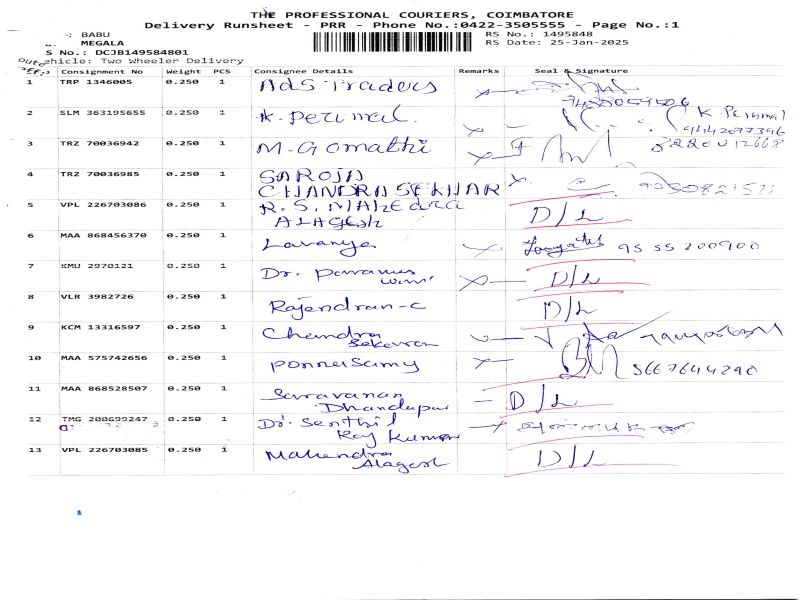 THE PROFESSIONAL COURIERS, COIMBATORE
Delivery Runsheet - PRR - Phone No.:0422-3505555 - Page No.:1
: BABU
MEGALA
S No.: DCJB149584801
RS No.: 1495848
RS Date: 25-Jan-2025
ehicle: Two Wheeler Delivery
Consignment No Weight PCS Consignee Details Remarks Seal & Signature
1 TRP 1346005 0.250 1 Ads Traders
2 SLM 363195655 0.250 1 K. Perumal. K Perumal
9442077396
3 TRZ 70036942 0.250 1 M. Gomathi
4 TRZ 70036985 0.250 1 SAROJA
CHANDRASEKHAR
5 VPL 226703086 0.250 1 R. S. MAHEdra
ALAGESH D/L
6 MAA 868456370 0.250 1 Lavanya 95 55 200900
7 KMU 2970121 0.250 1 Dr. D/L
8 VLR 3982726 0.250 1 Rajendran-c D/L
9 KCM 13316597 0.250 1 Chandra
Sekaran
10 MAA 575742656 0.250 1 ponnusamy 3667644290
11 MAA 868528507 0.250 1 Saravanan
Dhandapani D/L
12 TMG 200699247 0.250 1 Dr. Senthil
Raj Kumar
13 VPL 226703085 0.250 1 Mahendra
Alagesh D/L